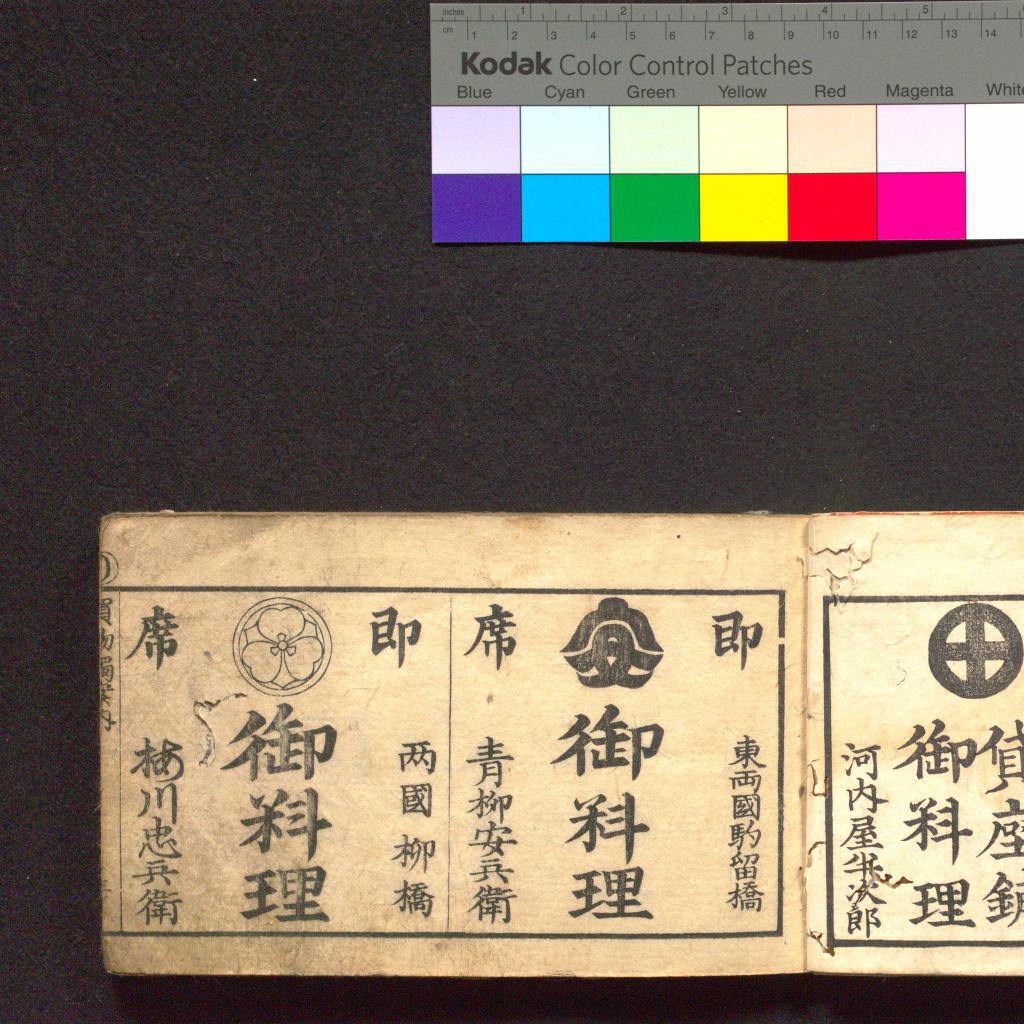 inches 1 2 3 4 5
cm 1 2 3 4 5 6 7 8 9 10 11 12 13 14
Kodak Color Control Patches
Blue Cyan Green Yellow Red Magenta White
御料理
河内屋半次郎
即席
東両國駒留橋
御料理
青柳安兵衛
即席
两國柳橋
御料理
梅川忠兵衛